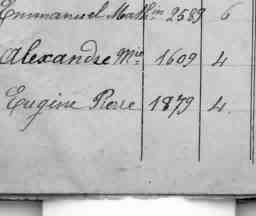 Emmanuel Math^in 2589 6
Alexandre M^ie 1609 4
Eugène Pierre 1879 4.